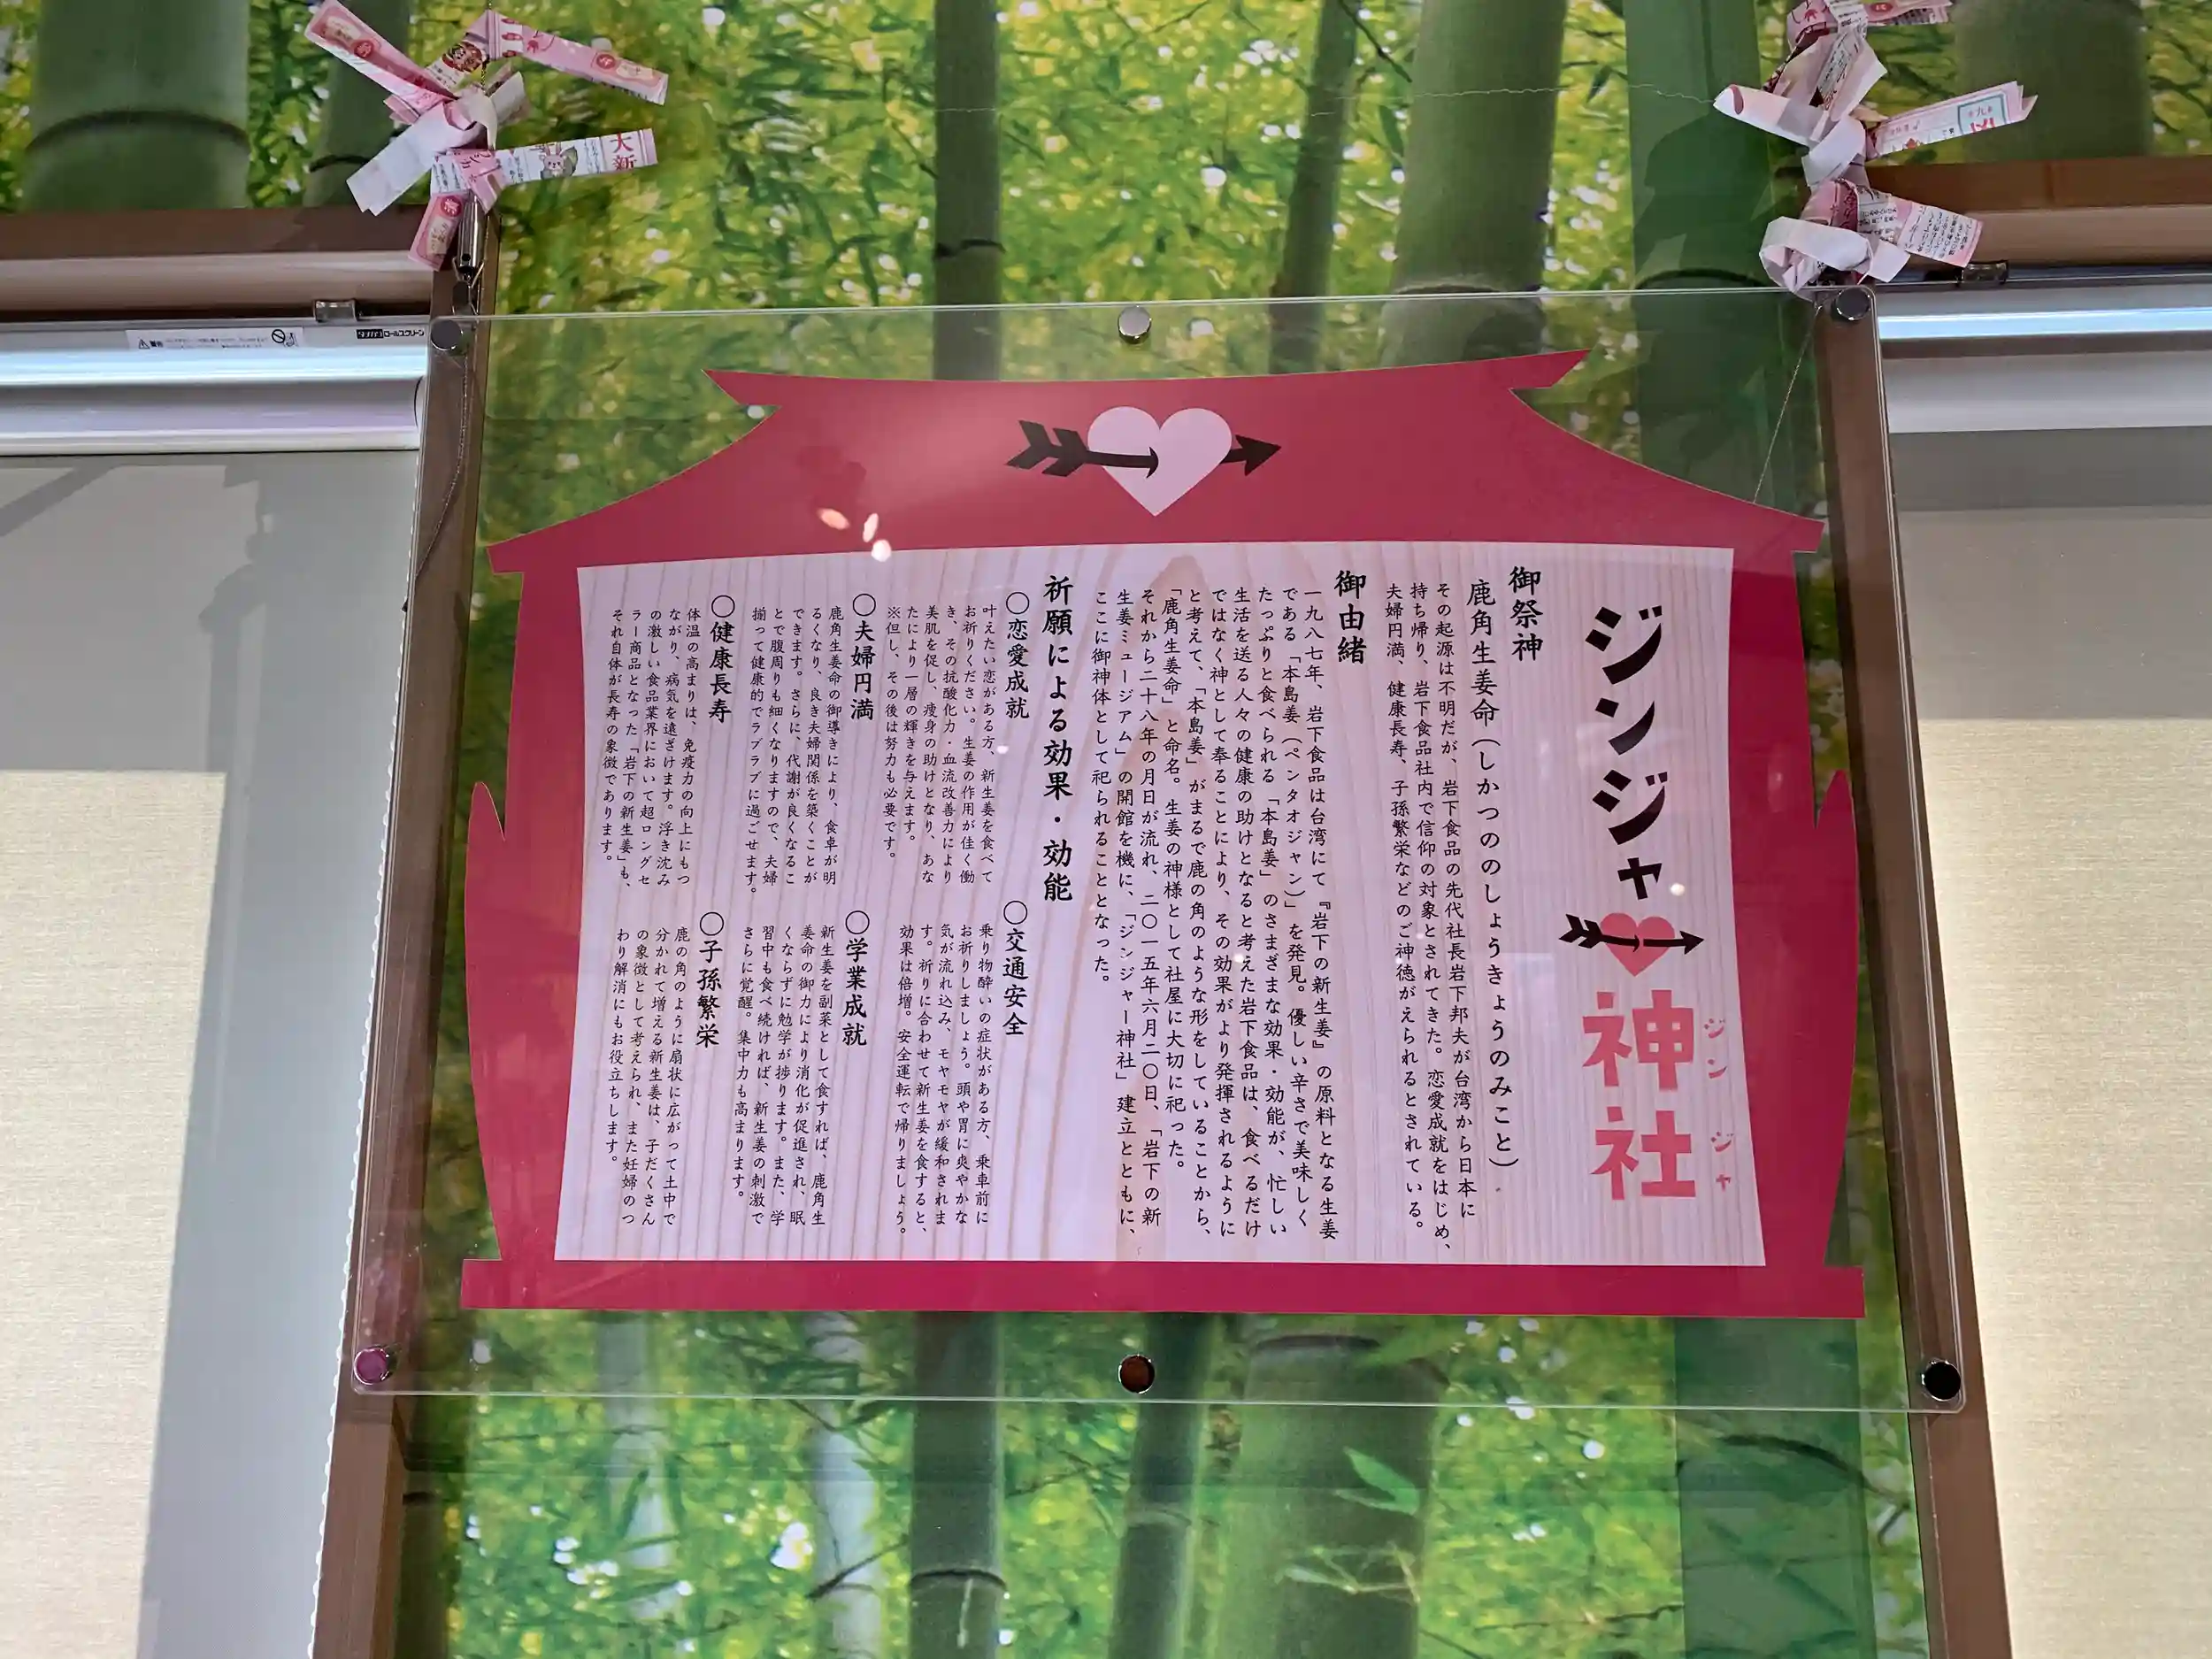 ジンジャ神社
ジンジャ
御祭神
鹿角生姜命(しかつののしょうきょうのみこと)
その起源は不明だが、岩下食品の先代社長岩下邦夫が台湾から日本に
持ち帰り、岩下食品社内で信仰の対象とされてきた。恋愛成就をはじめ、
夫婦円満、健康長寿、子孫繁栄などのご神徳がえられるとされている。
御由緒
一九八七年、岩下食品は台湾にて『岩下の新生姜』の原料となる生姜
である「本島姜(ペンタオジャン)」を発見。優しい辛さで美味しく
たっぷりと食べられる「本島姜」のさまざまな効果・効能が、忙しい
生活を送る人々の健康の助けとなると考えた岩下食品は、食べるだけ
ではなく神として奉ることにより、その効果がより発揮されるように
と考えて、「本島姜」がまるで鹿の角のような形をしていることから、
「鹿角生姜命」と命名。生姜の神様として社屋に大切に祀った。
それから二十八年の月日が流れ、二〇一五年六月二〇日、「岩下の新
生姜ミュージアム」の開館を機に、「ジンジャー神社」建立とともに、
ここに御神体として祀られることとなった。
祈願による効果・効能
〇恋愛成就
叶えたい恋がある方、新生姜を食べて
お祈りください。生姜の作用が佳く働
き、その抗酸化力・血流改善力により
美肌を促し、痩身の助けとなり、あな
たにより一層の輝きを与えます。
※但し、その後は努力も必要です。
〇交通安全
乗り物酔いの症状がある方、乗車前に
お祈りしましょう。頭や胃に爽やかな
気が流れ込み、モヤモヤが緩和されま
す。祈りに合わせて新生姜を食すると、
効果は倍増。安全運転で帰りましょう。
〇夫婦円満
鹿角生姜命の御導きにより、食卓が明
るくなり、良き夫婦関係を築くことが
できます。さらに、代謝が良くなるこ
とで腹周りも細くなりますので、夫婦
揃って健康的でラブラブに過ごせます。
〇学業成就
新生姜を副菜として食すれば、鹿角生
姜命の御力により消化が促進され、眠
くならずに勉学が捗ります。また、学
習中も食べ続ければ、新生姜の刺激で
さらに覚醒。集中力も高まります。
〇健康長寿
体温の高まりは、免疫力の向上にもつ
ながり、病気を遠ざけます。浮き沈み
の激しい食品業界において超ロングセ
ラー商品となった「岩下の新生姜」も、
それ自体が長寿の象徴であります。
〇子孫繁栄
鹿の角のように扇状に広がって土中で
分かれて増える新生姜は、子だくさん
の象徴として考えられ、また妊婦のつ
わり解消にもお役立ちします。
大新